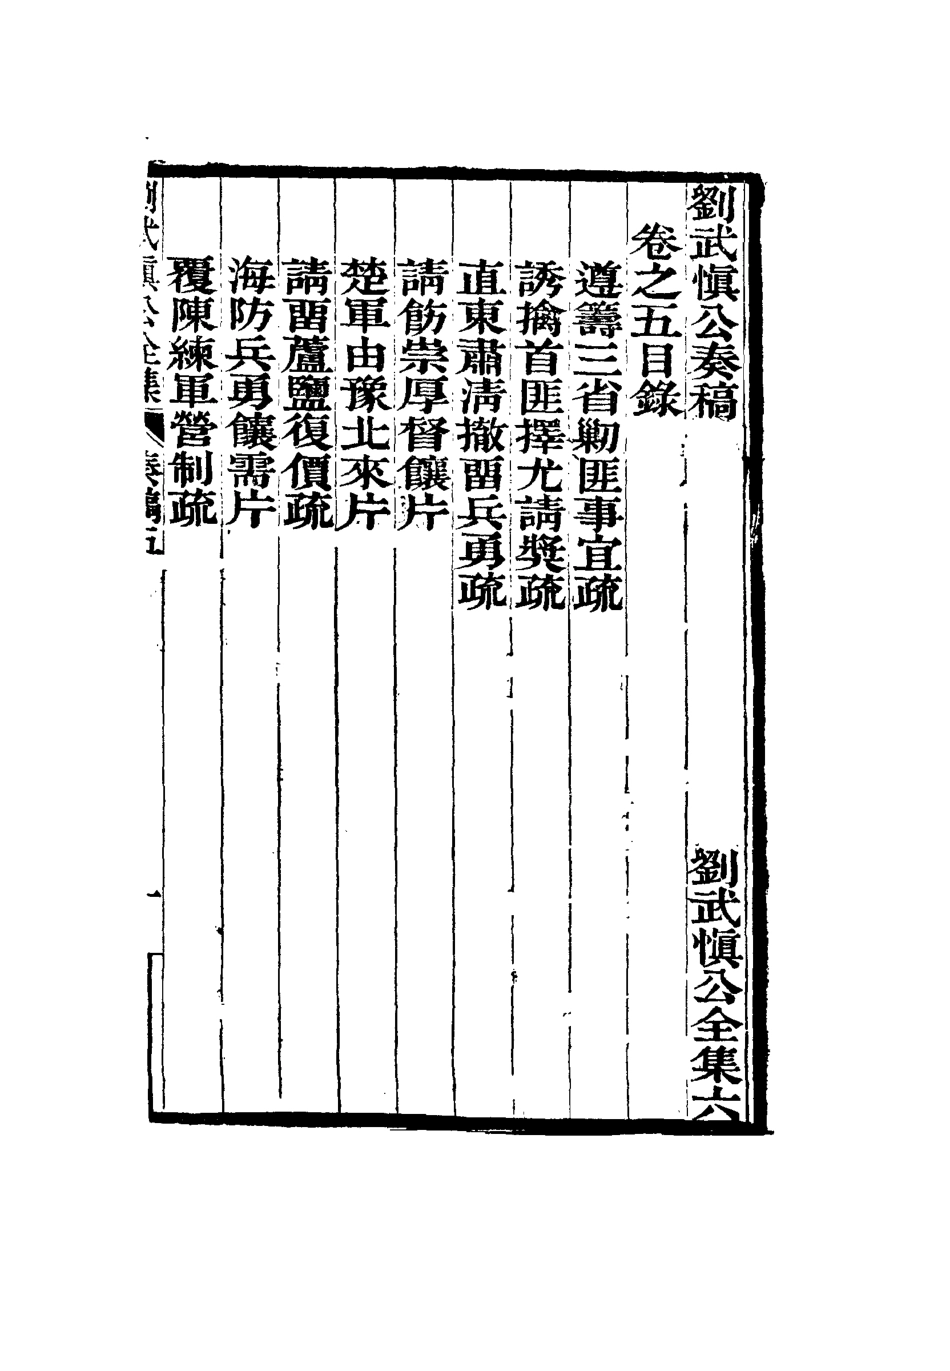 劉武愼公奏稿 劉武愼公全集六
卷之五目錄
遵籌三省勦匪事宜疏
誘擒首匪擇尤請奬疏
直東肅淸撤畱兵勇疏
請飭崇厚督饟片
楚軍由豫北來片
請畱蘆鹽復價疏
海防兵勇饟需片
覆陳練軍營制疏
劉武愼公全集 奏稿五 一